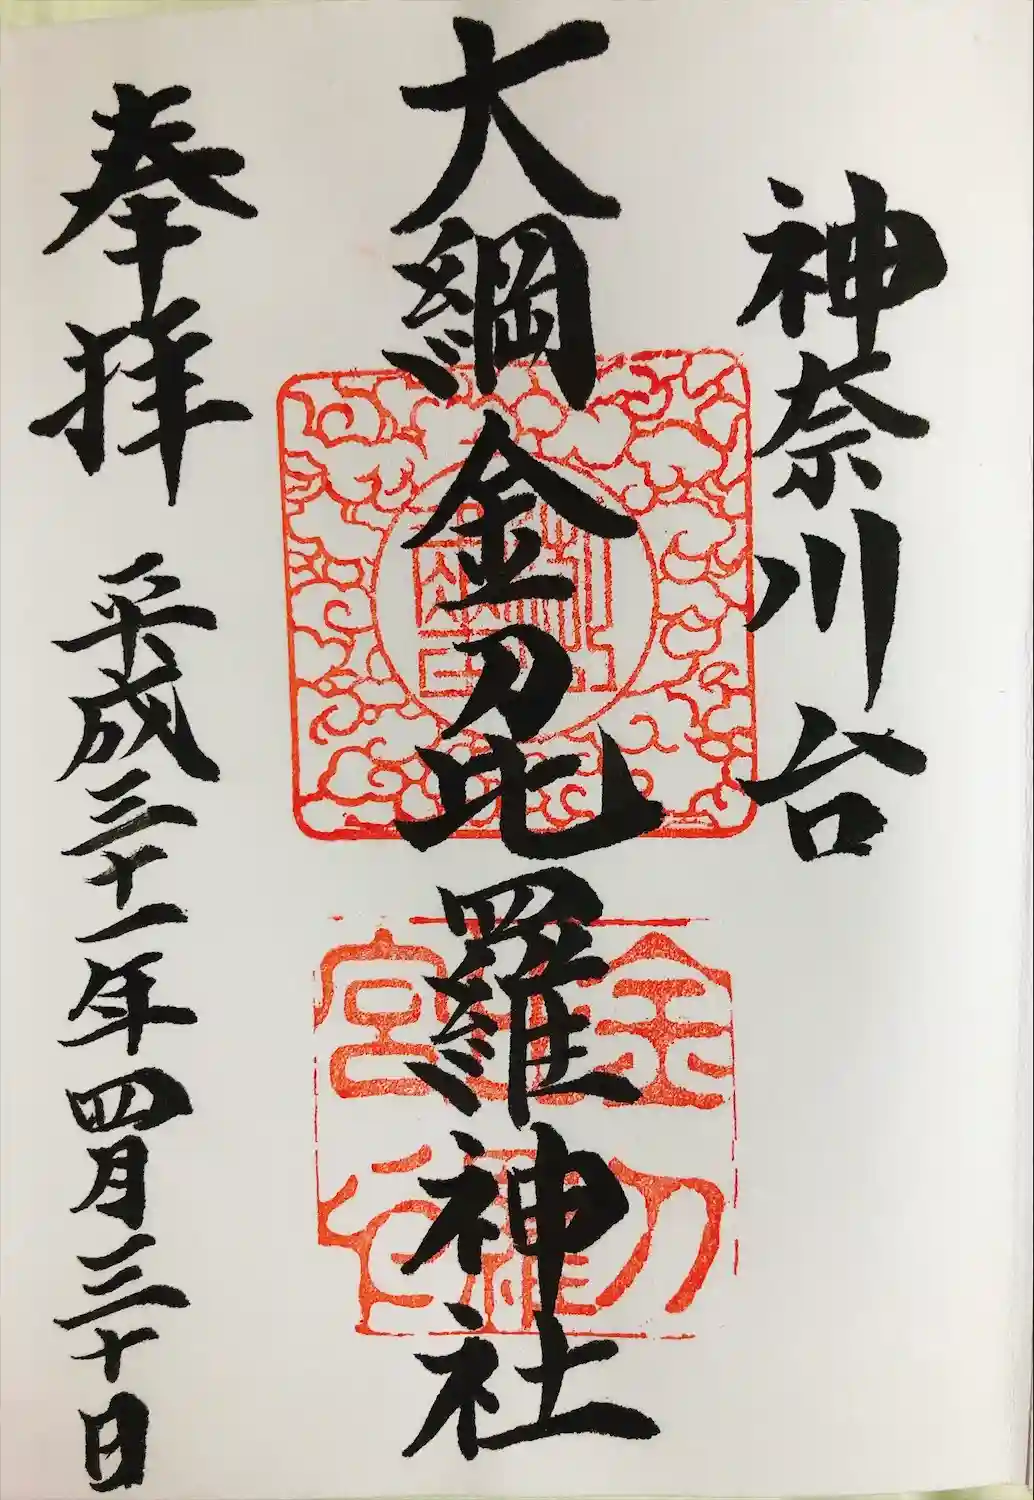 神奈川台
大綱金刀比羅神社
奉拝 平成三十一年四月三十日